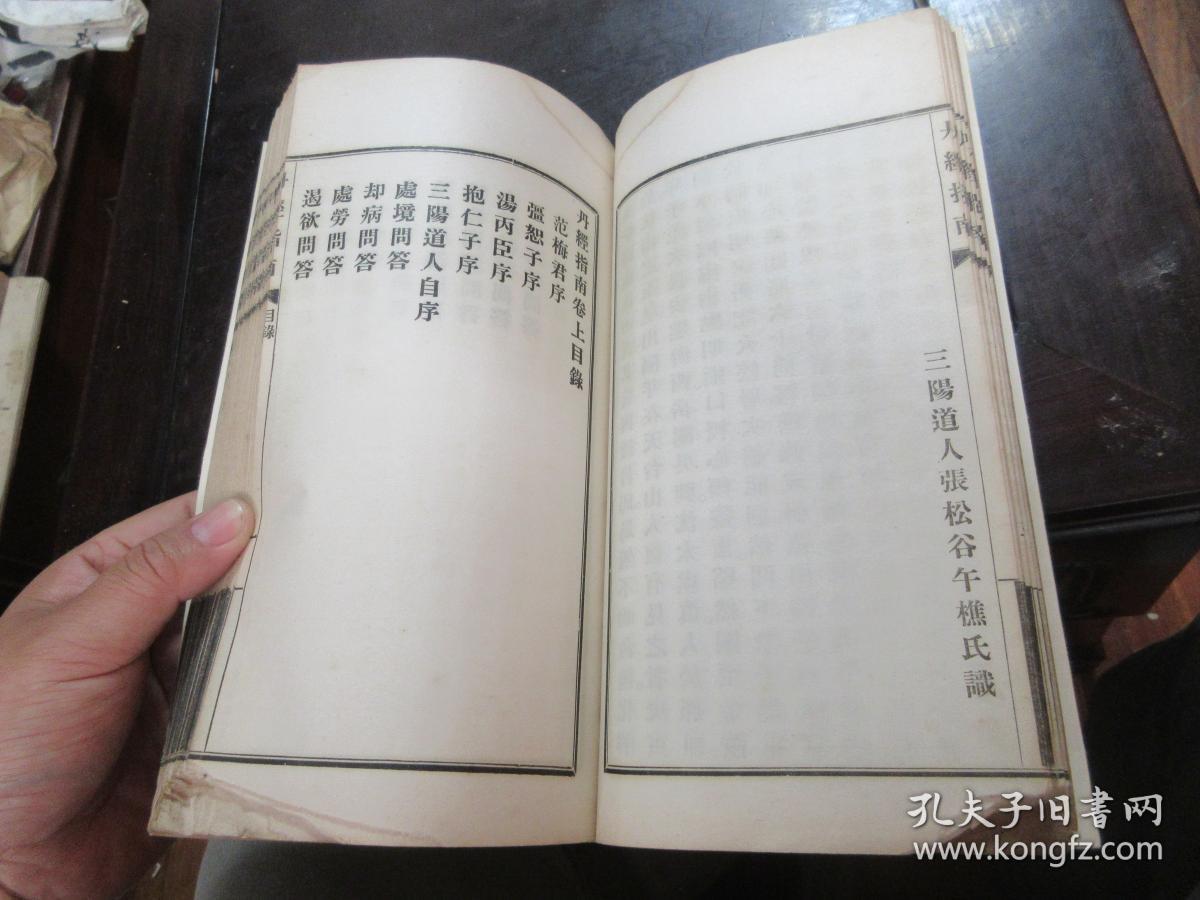 丹經指南
三陽道人張松谷午樵氏識
丹經指南卷上目錄
范梅君序
彊恕子序
湯丙臣序
抱仁子序
三陽道人自序
處境問答
却病問答
處勞問答
遏欲問答
目錄
孔夫子旧书网
www.kongfz.com